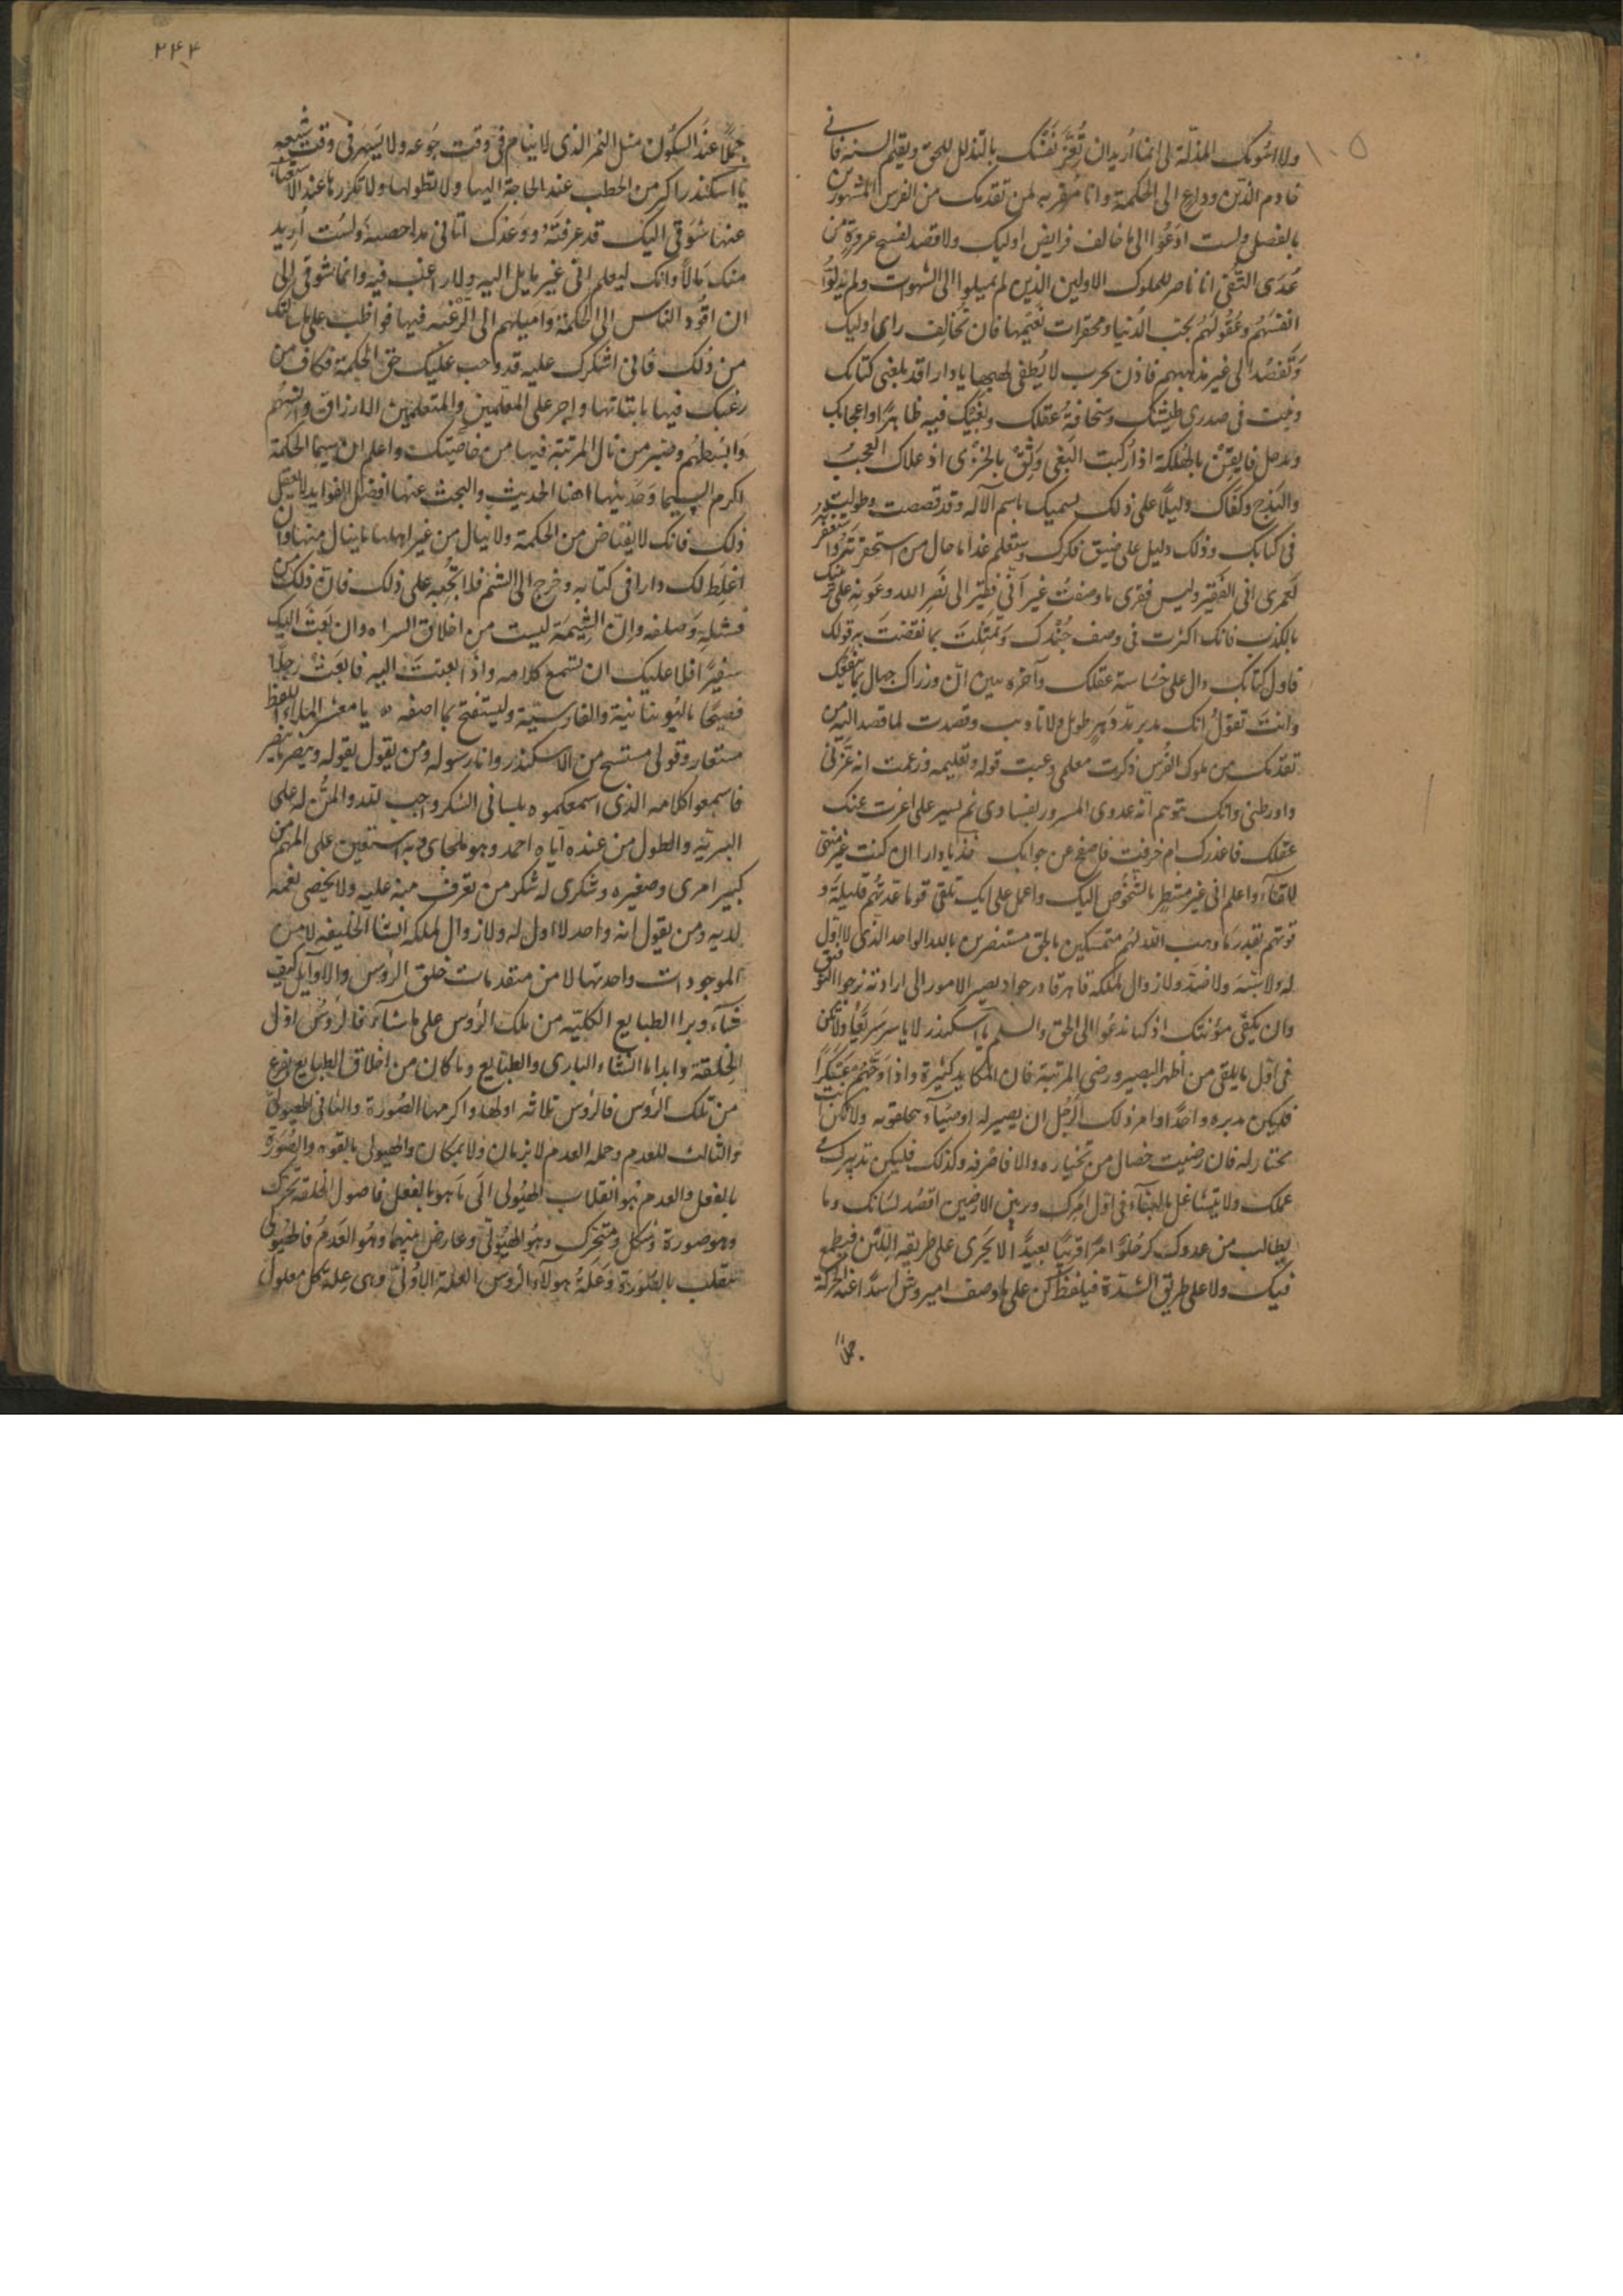 ١٠٥
ولا اسومك المذلة لى انما اريد ان تُعِزَّ نفسك بالتذلل للحق وتقيم السنه فانى
خادم الدين وداع الى الحكمة وانا مُقر به لمن تقدمك من الفرس المشهورين
بالفضل ولست ادعوا الى ما خالف فرايض اوليك ولا اقصد لفسخ عروة من
عُرَى التُّقى انا ناصر للملوك الاولين الذين لم يميلوا الى الشهوات ولم يذلوا
انفسهم وعقولهم بحب الدنيا ومحقرات نعيمها فان تخالف راى اوليك
وتقصد الى غير مذاهبهم فاذن بحرب لا يُطفى لهيبها يا دارا قد بلغنى كتابك
وثبت فى صدرى طيشك وسخافة عقلك وبغيك فيه ظاهرًا واعجابك
فايقن بالهلكة اذا ركبت البغى وثق بالخزى اذ علاك العجب
والبذخ وكفاك دليلًا على ذلك تسميك باسم الآله وقد قصصت وطولت
فى كتابك وذلك دليل على ضيق فكرك وستعلم غدا ما حال من استحقرته
لعمرى انى الفقير وليس فقرى ما وصفت غير انى فقير الى نصر الله وعونه على
بالكذب فانك اكثرت فى وصف جُندك وتمثلت بما نقضت به قولك
فاول كتابك دال على خساسة عقلك وآخره يبين ان وزراك جهال
وانت تقول انك مدبر بدهر طويل ولا تاديب وقصدت لما قصد اليه من
تقدمك من ملوك الفرس ذكرت معلمى وعبت قوله وتعليمه وزعمت انه غرنى
واورطنى وانك تتوهم انه عدوى المسرور بفسادى
عقلك فاعذرك ام خرفت فاصفح عن جوابك فخذ يا دارا ان كنت غير منتهى
للقاء واعلم انى غير منتظر بالشخوص اليك واعمل على انك تلقى قوما عدتهم قليلة و
قوتهم بقدر ما وهب الله لهم متمسكين بالحق مستنصرين بالله الواحد الذى لا اول
له ولا شبه ولا ضد ولا زوال لملكه قاهر قادر جواد يصير الامور الى ارادته نرجوا
وان يكفى مؤنتك اذ كنا ندعوا الى الحق والسلم يا اسكندر لا ياسر سريعًا ولا تكن
فى اول ما يلقى من اظهر البصير ورضى المرتبة فان المكايد كثيرة
فليكن مدبره واحدًا وامر ذلك الرجل ان يصير له اوصياء
تختار له فان رضيت خصال من تختياره والا فاصرفه وكذلك فليكن تدبيرك
عملك ولا تتشاغل بالبناء فى اول امرك وزين الارضين اقصد لسانك وما
يطالب من عدوك كن حلوًا مرًا قريبًا بعيدًا لا تجرى على طريقه اللين فيطمع
فيك ولا على طريق الشدة فيلفظ كن على ما وصف اميروش اسدًا عند الحركة
حملا
٢٤٤
جملًا عند السكون مثل النمر الذى لا ينام فى وقت جوعه ولا يسهر فى وقت شبعه
يا اسكندر اكثر من الخطب عند الحاجة اليها ولا تطولها ولا تكررها عند الاستغناء
عنها شوقى اليك قد عرفته ووعدك اتانى ولست اريد
منك مالًا وانك ليعلم انى غير مايل اليه ولا راغب فيه وانما شوقى الى
ان اقود الناس الى الحكمة واميلهم الى الرغبه فيها فواظب على ما سالتك
من ذلك فانى اشكرك عليه قد وجب عليك حق الحكمة فكاف من
رغبك فيها باثباتها واجر على المعلمين والمتعلمين الارزاق
وابسطهم وصير من نال المرتبة فيها من خاصيتك واعلم ان سيما الحكمة
اكرم السيما وحديثها اهنا الحديث والبحث عنها افضل الفوايد
ذلك فانك لا يعتاض من الحكمة ولا ينال من غير اهلها ما ينال منها وان
اغلظ لك دارا فى كتابه وخرج الى الشتم فلا تجبه على ذلك فان ذلك من
فشله وصلفه وان الشتيمة ليست من اخلاق السراه وان بعث اليك
سفيرًا فلا عليك ان تسمع كلامه واذا بعثت اليه فابعث رجلًا
فصيحًا باليونانية والفارسية وليستفتح بما اصفه ه يا معشر الملاء اللفظ
مستعار وقولى مستنسخ من الاسكندر وانا رسوله ومن يقول بقوله
فاسمعوا كلامه الذى اسمعكموه بلسانى الشكر واجب لله والمن له على
البريه والطول من عنده اياه احمد وهو ملجاى وبه استعين على المهم من
كبير امرى وصغيره وشكرى له شكر من تعرف منه عليه ولا يحصى نعمه
لديه ومن يقول انه واحد لا اول له ولا زوال لملكه انشا الخليقه لا من
الموجودات واحدثها لا من متقدمات خلق الروس والاوايل كيف
شاء وبرا الطبايع الكلية من تلك الروس على ما شاء فالروس اول
الخلقة وابدا ما انشاء البارى والطبايع وما كان من اخلاق الطبايع
من تلك الروس فالروس ثلاثه اولها واكرمها الصورة والثانى الهيولى
والثالث للعدم وجمله العدم لا بزمان ولا بمكان والهيولى بالقوه والصورة
بالفعل والعدم هو انقلاب الهيولى الى ما هو بالفعل فاصول الخلقه
وهو صورة وشكل ومتحرك وهو الهيولى وعارض بينهما وهو العدم فالهيولى
تنقلب بالصورة وعلة هولاء الروس العلة الاولى وهى علة كل معلول